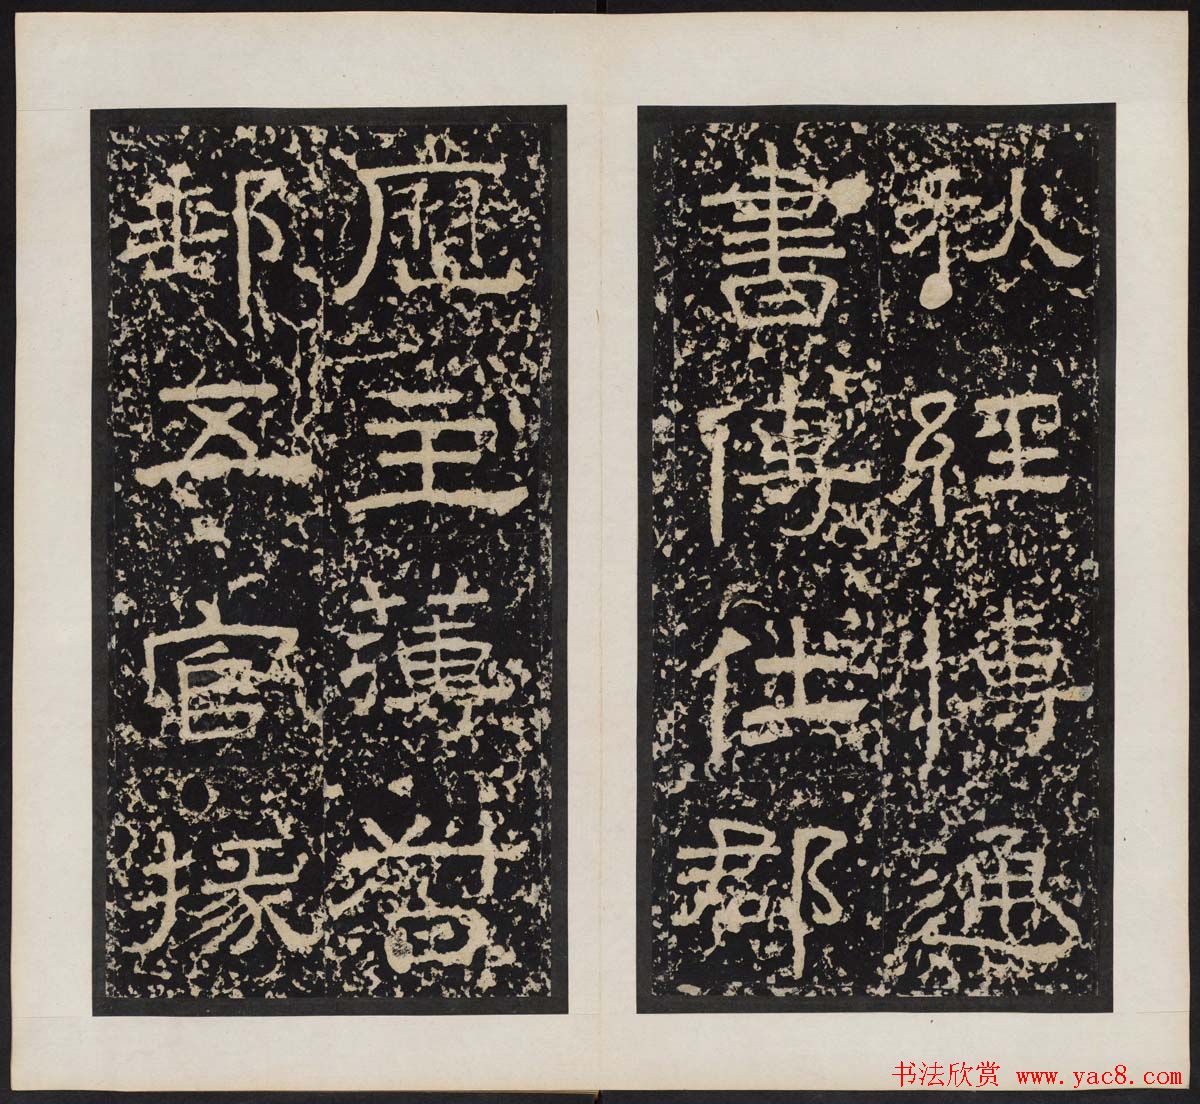 秋經博通
書傳仕郡
歷主簿督
郵五官掾
书法欣赏 www.yac8.com